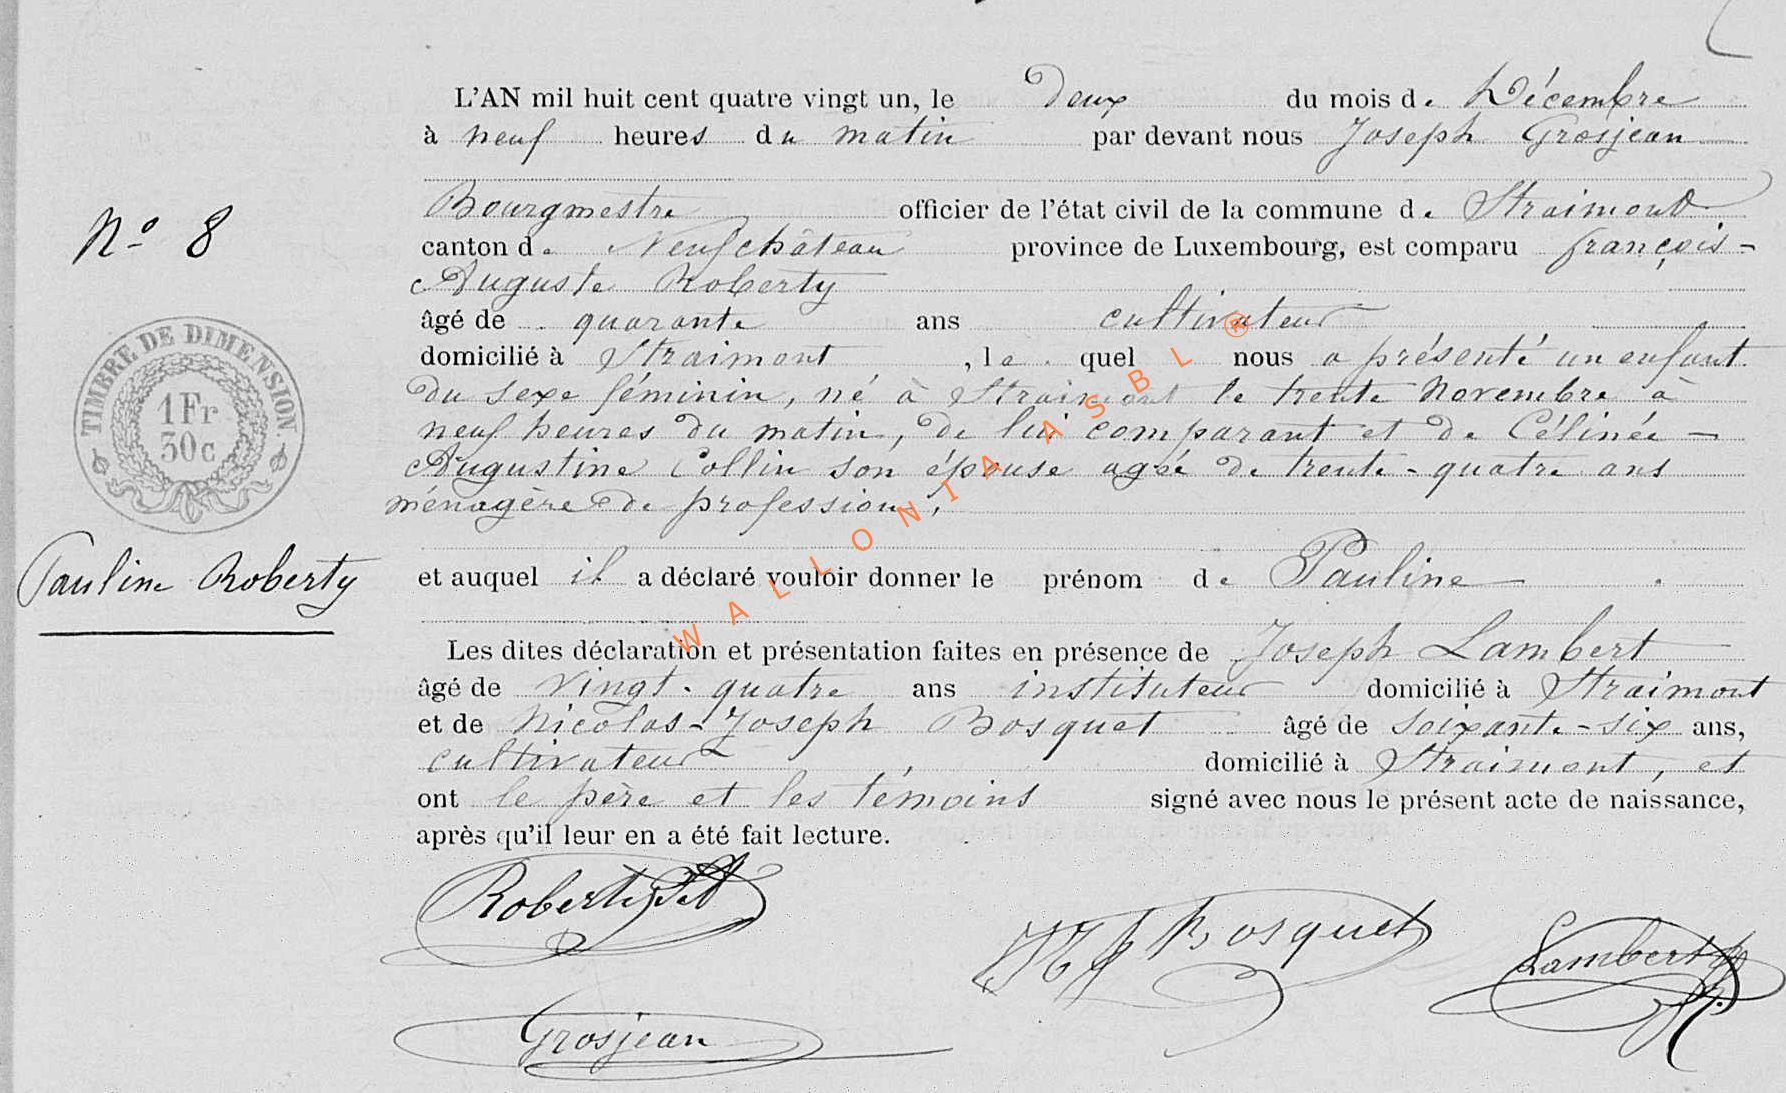 L'AN mil huit cent quatre vingt un, le Deux du mois de Décembre
à neuf heures du matin par devant nous Joseph Grosjean
Bourgmestre officier de l'état civil de la commune de Straimont
N° 8
canton de Neufchâteau province de Luxembourg, est comparu françois-
Auguste Roberty
âgé de quarante ans cultivateur
domicilié à Straimont, le quel nous a présenté un enfant
du sexe féminin, né à Straimont le trente Novembre à
neuf heures du matin, de lui comparant et de Célinée -
Augustine Collin son épouse agée de trente-quatre ans
ménagère de profession,
TIMBRE DE DIMENSION.
1 Fr
30c
Pauline Roberty
et auquel il a déclaré vouloir donner le prénom de Pauline
Les dites déclaration et présentation faites en présence de Joseph Lambert
âgé de vingt-quatre ans instituteur domicilié à Straimont
et de Nicolas-Joseph Bosquet âgé de soixante-six ans,
cultivateur, domicilié à Straimont, et
ont le père et les témoins signé avec nous le présent acte de naissance,
après qu'il leur en a été fait lecture.
Roberty
Bosquet
Lambert
Grosjean
WALLONIA ASBL®